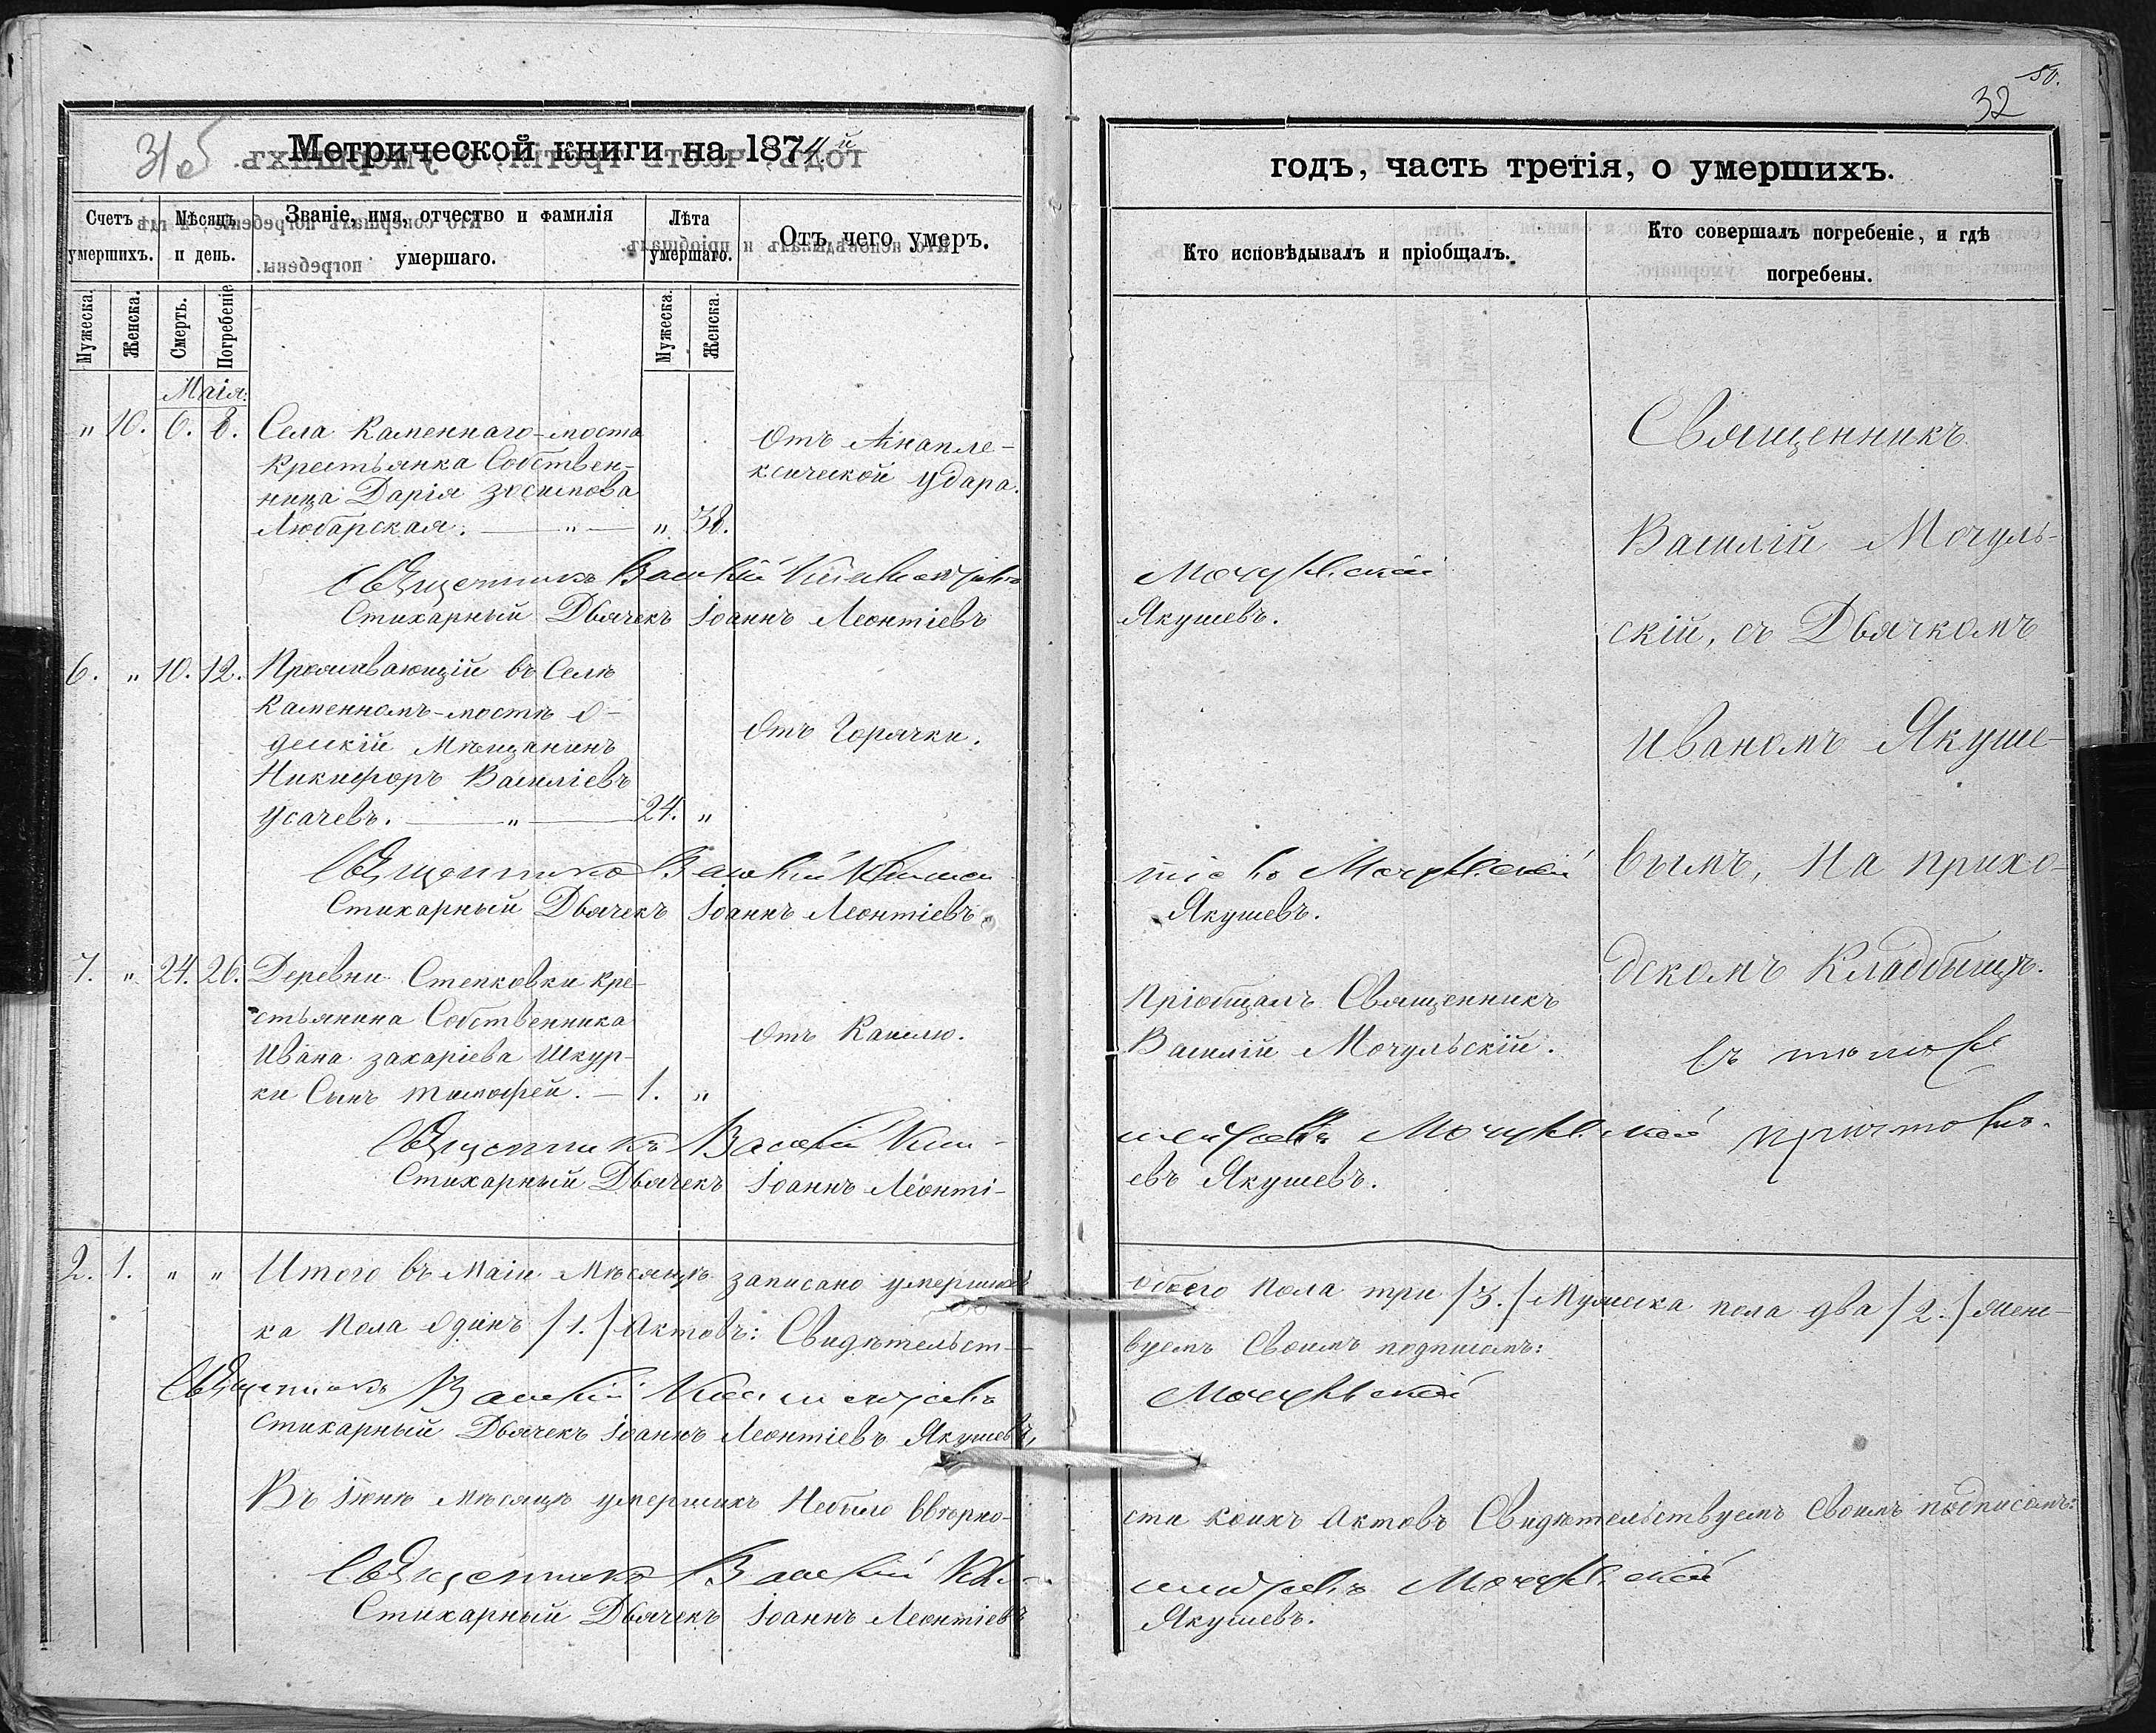 31об
Метрической книги на 1874й
Счетъ умершихъ.
Мѣсяцъ и день.
Званіе, имя, отчество и фамилія
умершаго.
Лѣта умершаго.
Отъ чего умеръ.
Мужеска.
Женска.
Смерть.
Погребеніе
Мужеска.
Женска.
Маія.
" 10. 6. 8. Села Каменнаго-моста
Крестьянка Собствен-
ница Дарія Зосимова
Любарская. — " — " 38.
Отъ Апапле-
ксической удара.
Священникъ Василій
Стихарный Дьячекъ Іоаннъ Леонтіевъ
6. " 10. 12. Проживающій въ Селѣ
Каменномъ-мостѣ О-
десскій Мѣщанинъ
Никифоръ Василіевъ
Усачевъ. — " — 24. "
Отъ Горячки.
Священникъ Василій
Стихарный Дьячекъ Іоаннъ Леонтіевъ
7. " 24. 26. Деревни Степковки кре-
стьянина Собственника
Ивана Захаріева Шкур-
ки Сынъ Тимофей. — 1. "
Отъ Кашлю.
Священникъ Василій
Стихарный Дьячекъ Іоаннъ Леонті-
2. 1. " " Итого въ Маіи Мѣсяцѣ записано умершихъ
ка пола Одинъ /1./ Актовъ: Свидѣтельст-
Священникъ Василій
Стихарный Дьячекъ Іоаннъ Леонтіевъ Якушевъ,
Въ Іюнѣ Мѣсяцѣ умершихъ Небыло Ввѣрно-
Священникъ Василій
Стихарный Дьячекъ Іоаннъ Леонтіевъ
50.
32
годъ, часть третія, о умершихъ.
Кто исповѣдывалъ и пріобщалъ.
Кто совершалъ погребеніе, и гдѣ
погребены.
Мочульскій
Якушевъ.
Мочульскій
Якушевъ.
Пріобщалъ Священникъ
Василій Мочульскій.
Мочульскій
евъ Якушевъ.
Священникъ
Василій Мочуль-
скій, съ Дьячкомъ
Иваномъ Якуше-
вымъ, На прихо-
дскомъ Кладбищѣ.
обоего пола три /3./ Мужеска пола два /2./ Женс-
вуемъ Своимъ подписомъ:
Мочульскій
сти коихъ Актовъ Свидѣтельствуемъ Своимъ подписомъ:
Мочульскій
Якушевъ.